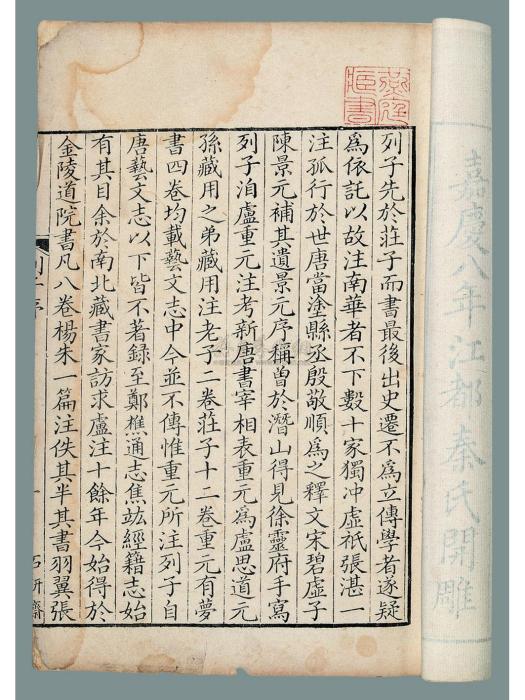 嘉慶八年江都秦氏開雕
燕庭藏書
列子先於莊子而書最後出史遷不為立傳學者遂疑
為依託以故注南華者不下數十家獨沖虛祇張湛一
注孤行於世唐當塗縣丞殷敬順為之釋文宋碧虛子
陳景元補其遺景元序稱曾於潛山得見徐靈府手寫
列子洎盧重元注考新唐書宰相表重元為盧思道元
孫藏用之弟藏用注老子二卷莊子十二卷重元有夢
書四卷均載藝文志中今並不傳惟重元所注列子自
唐藝文志以下皆不著録至鄭樵通志焦竑經籍志始
有其目余於南北藏書家訪求盧注十餘年今始得於
金陵道院書凡八卷楊朱一篇注佚其半其書羽翼張
列子序
一
石研齋